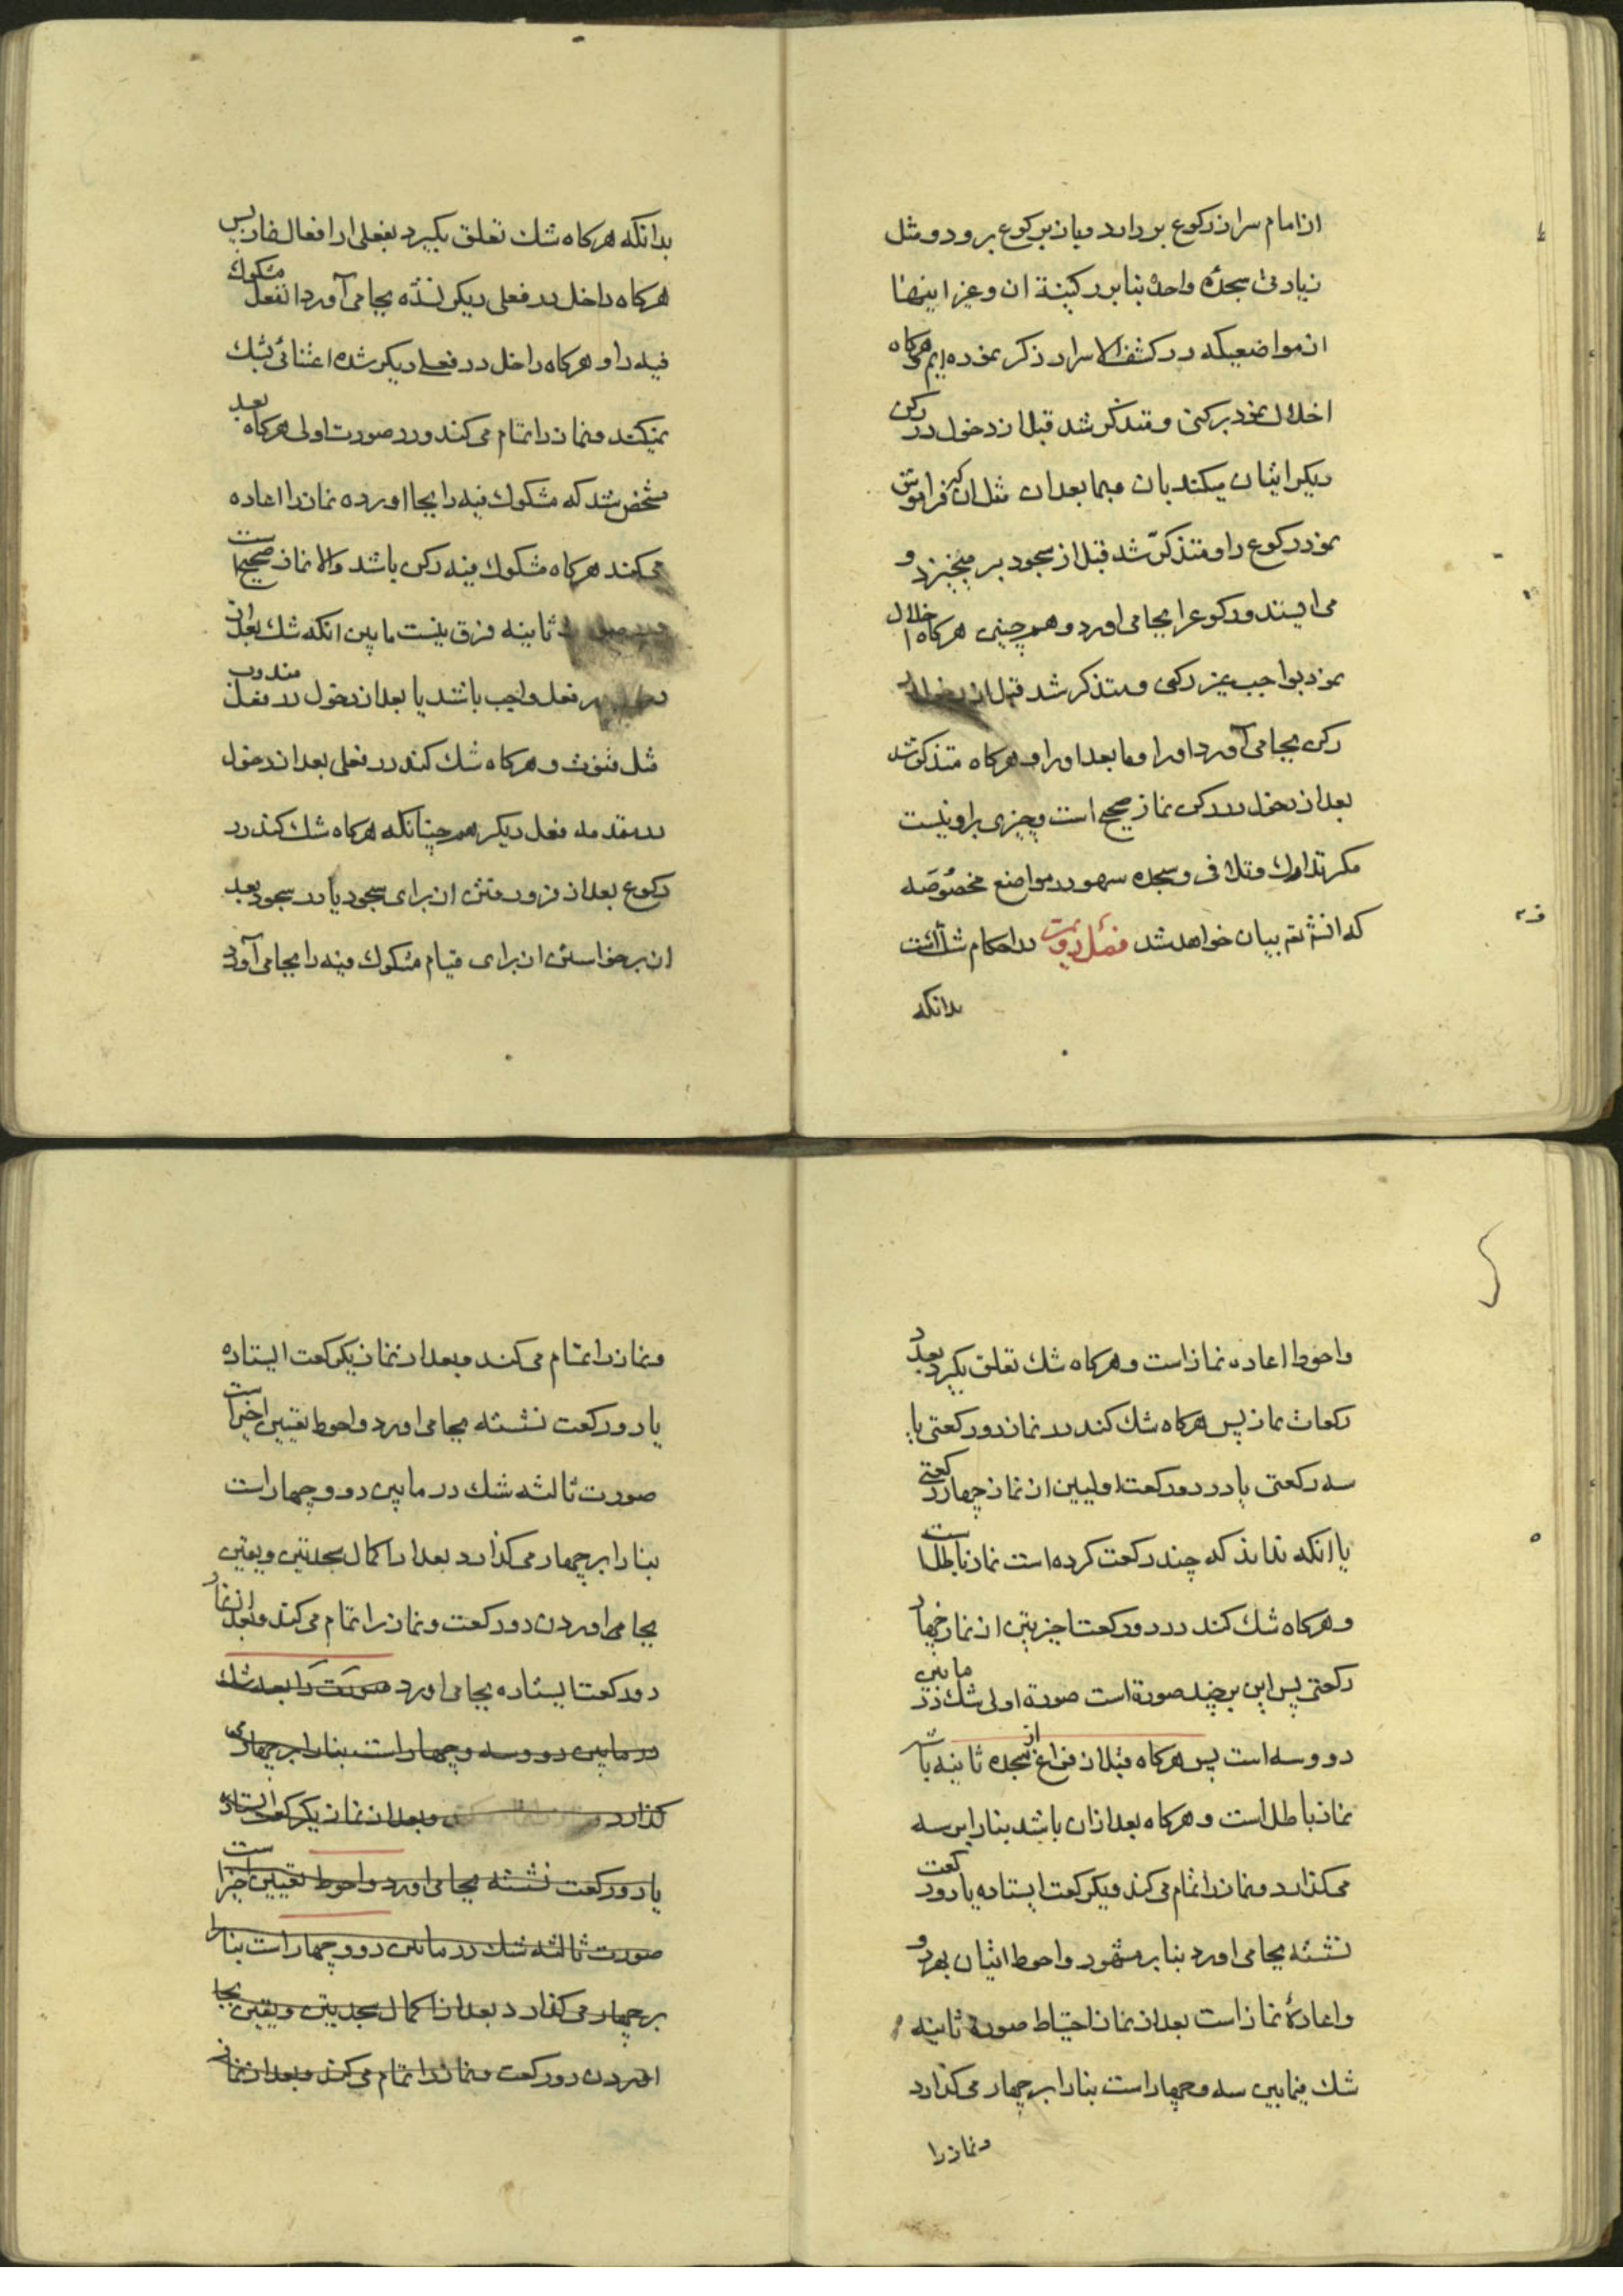 از امام سر از رکوع بردارد و باز برکوع برود و مثل
زیادتی سجده واحده بنا بر رکنیة ان و غیر اینها
از مواضعیکه در کشف الاسرار ذکر نموده ایم و هرکاه
اخلال نمود برکنی و متذکر شد قبل از دخول در رکن
دیکر اتیان میکند بان و بما بعد ان مثل ان که فراموش
نمود رکوع را و متذکر شد قبل از سجود بر میخیزد و
می ایستد و رکوع را بجا می اورد و هم چنین هرکاه اخلال
نمود بواجب غیر رکنی و متذکر شد قبل از دخول در
رکن بجا می آورد او را و ما بعد او را و هرکاه متذکر شد
بعد از دخول در رکن نماز صحیح است و چیزی بر او نیست
مکر تدارک و تلافی و سجده سهو در مواضع مخصوصه
که انش تم بیان خواهد شد فصل دویمت در احکام شک است
بدانکه
بدانکه هرکاه شک تعلق بکیرد بفعلی از افعال نماز پس
هرکاه داخل در فعلی دیکر نشده بجا می آورد انفعل مشکوک
فیه را و هرکاه داخل در فعلی دیکر شده اعتنائی بشک
نمیکند و نماز را تمام می کند و در صورت اولی هرکاه بعد
مشخص شد که مشکوک فیه را بجا اورده نماز را اعاده
می کند هرکاه مشکوک فیه رکن باشد و الا نماز صحیح است
ثانیه فرق نیست ما بین انکه شک بعد از
فعل واجب باشد یا بعد از دخول در فعل مندوب
مثل قنوت و هرکاه شک کند در فعلی بعد از دخول
در مقدمه فعل دیکر هم چنانکه هرکاه شک کند در
رکوع بعد از فرو رفتن از برای سجود یا در سجود بعد
از برخواستن از برای قیام مشکوک فیه را بجا می آورد
و احوط اعاده نماز است و هرکاه شک تعلق بکیرد بعدد
رکعات نماز پس هرکاه شک کند در نماز دو رکعتی یا
سه رکعتی یا در دو رکعت اولیین از نماز چهار رکعتی
یا انکه نداند که چند رکعت کرده است نماز باطل است
و هرکاه شک کند در دو رکعت اخیرتین از نماز چهار
رکعتی پس این بر چند صورة است صورة اولی شک در ما بین
دو و سه است پس هرکاه قبل از فراغ از سجده ثانیه باشد
نماز باطل است و هرکاه بعد از ان باشد بنا را بر سه
می کذارد و نماز را تمام می کند و یکرکعت ایستاده یا دو رکعت
نشسته بجا می اورد بنا بر مشهور و احوط اتیان بهر دو
و اعادهٔ نماز است بعد از نماز احتیاط صورة ثانیه
شک فیما بین سه و چهار است بنا را بر چهار می کذارد
و نماز را
و نماز را تمام می کند و بعد از نماز یکرکعت ایستاده
یا دو رکعت نشسته بجا می اورد و احوط تعیین اخیر است
صورت ثالثه شک در ما بین دو و چهار است
بنا را بر چهار می کذارد بعد از اکمال سجدتین و یقین
بجا می اوردن دو رکعت و نماز را تمام می کند و بعد از نماز
دو رکعت ایستاده بجا می اورد صورت رابعه شک
در ما بین دو و سه و چهار است بنا را بر چهار می
کذارد و بعد از نماز یکرکعت ایستاده
یا دو رکعت نشسته بجا می اورد و احوط تعیین اخیر است
صورت ثالثه شک در ما بین دو و چهار است بنا را
بر چهار می کذارد بعد از اکمال سجدتین و یقین بجا
اوردن دو رکعت و نماز را تمام می کند و بعد از نماز